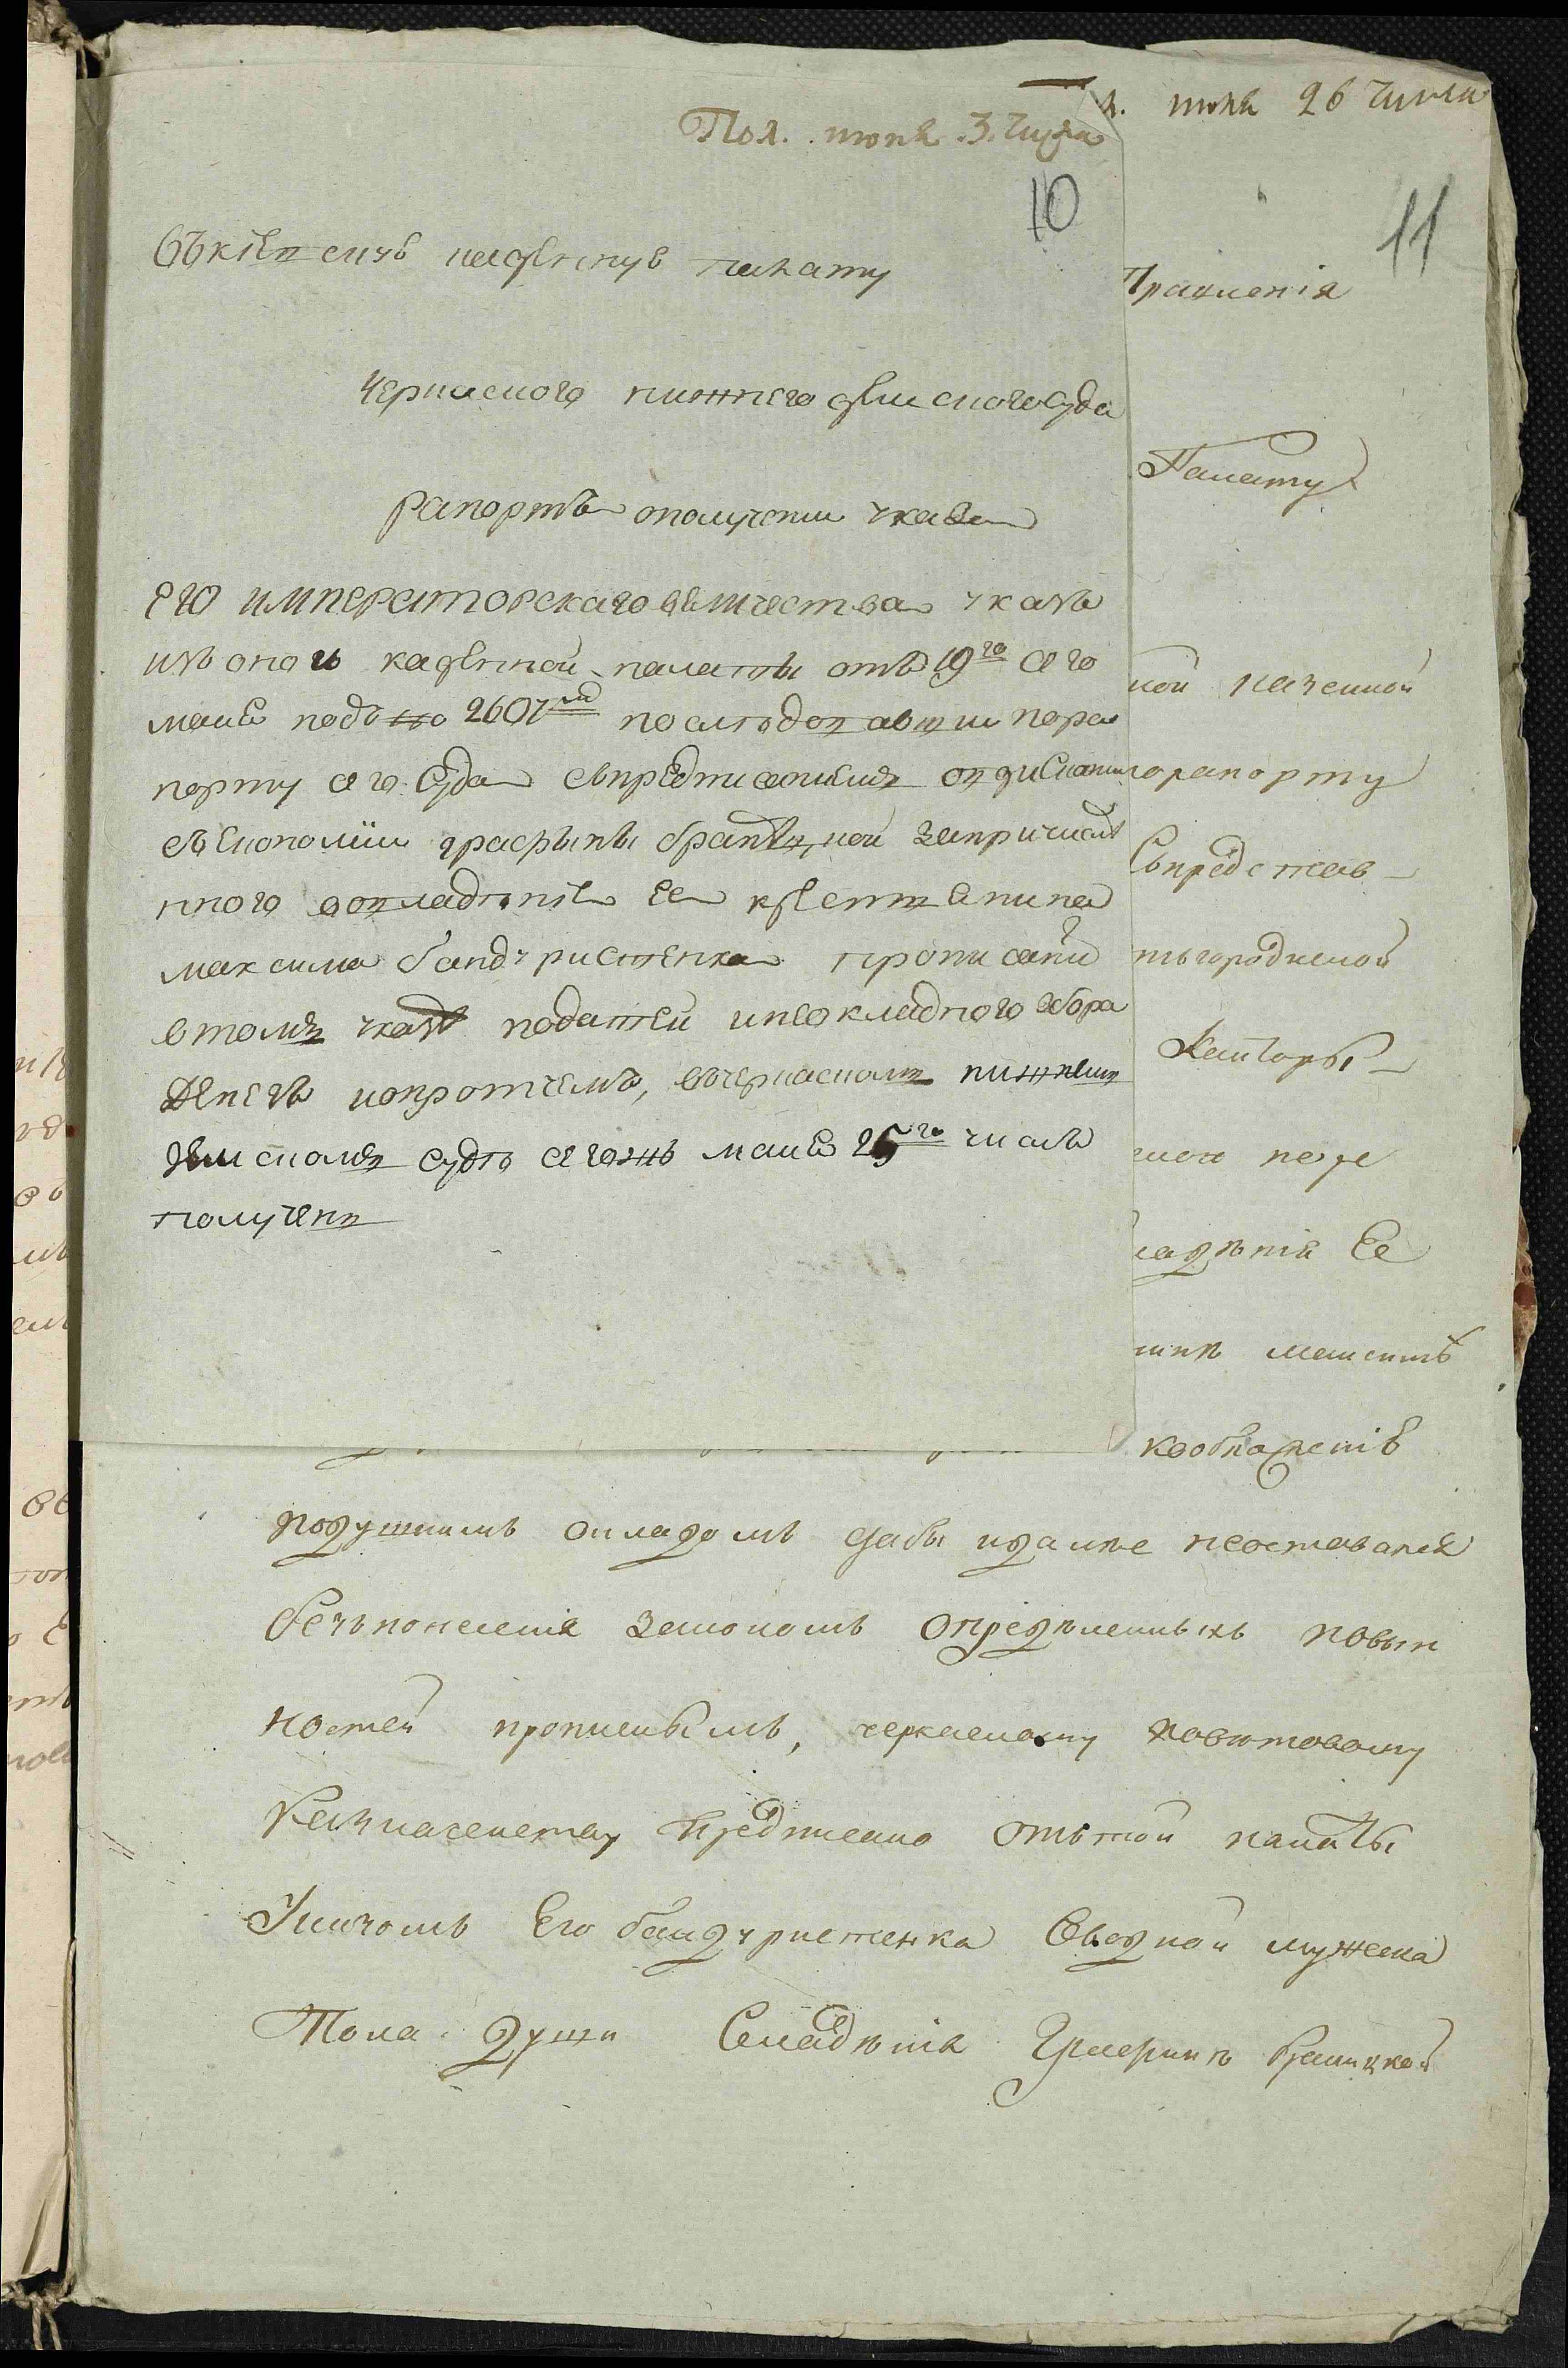 Пол. июня 3. числа
10
Въ киевскую казенную палату
Черкаского нижнего земского суда
рапортъ о получении указа
Его императорскаго величества указъ
изъ оной казенной палаты отъ 19го сего
маия подъ № 2607мъ последовавший по ра
порту сего суда съ предписаниемъ о взискании
съ економии графыни браницкой за причислен
ного во владение ее крестянина
максима бандуристенка прописаних
в томъ указе податей и неокладного збора
денегъ и о протчемъ, въ черкаскомъ нижнемъ
земскомъ суде сегожъ маия 25го числа
полученъ
июня 26 числа
11
Правления
Палату
ной казенной
по рапорту
Съ представ
городиской
Канторы
владѣнія Ее
максимъ
ко обложенію
подушнимъ окладомъ дабы и далѣе не оставался
безъ понесенія закономъ опредѣленныхъ повин
ностей прописнымъ, черкаскому повѣтовому
Казначейству предписано отъ той палаты
Указомъ Его бандуристенка въ одной мужеска
Пола души владѣнія Графини браницкой